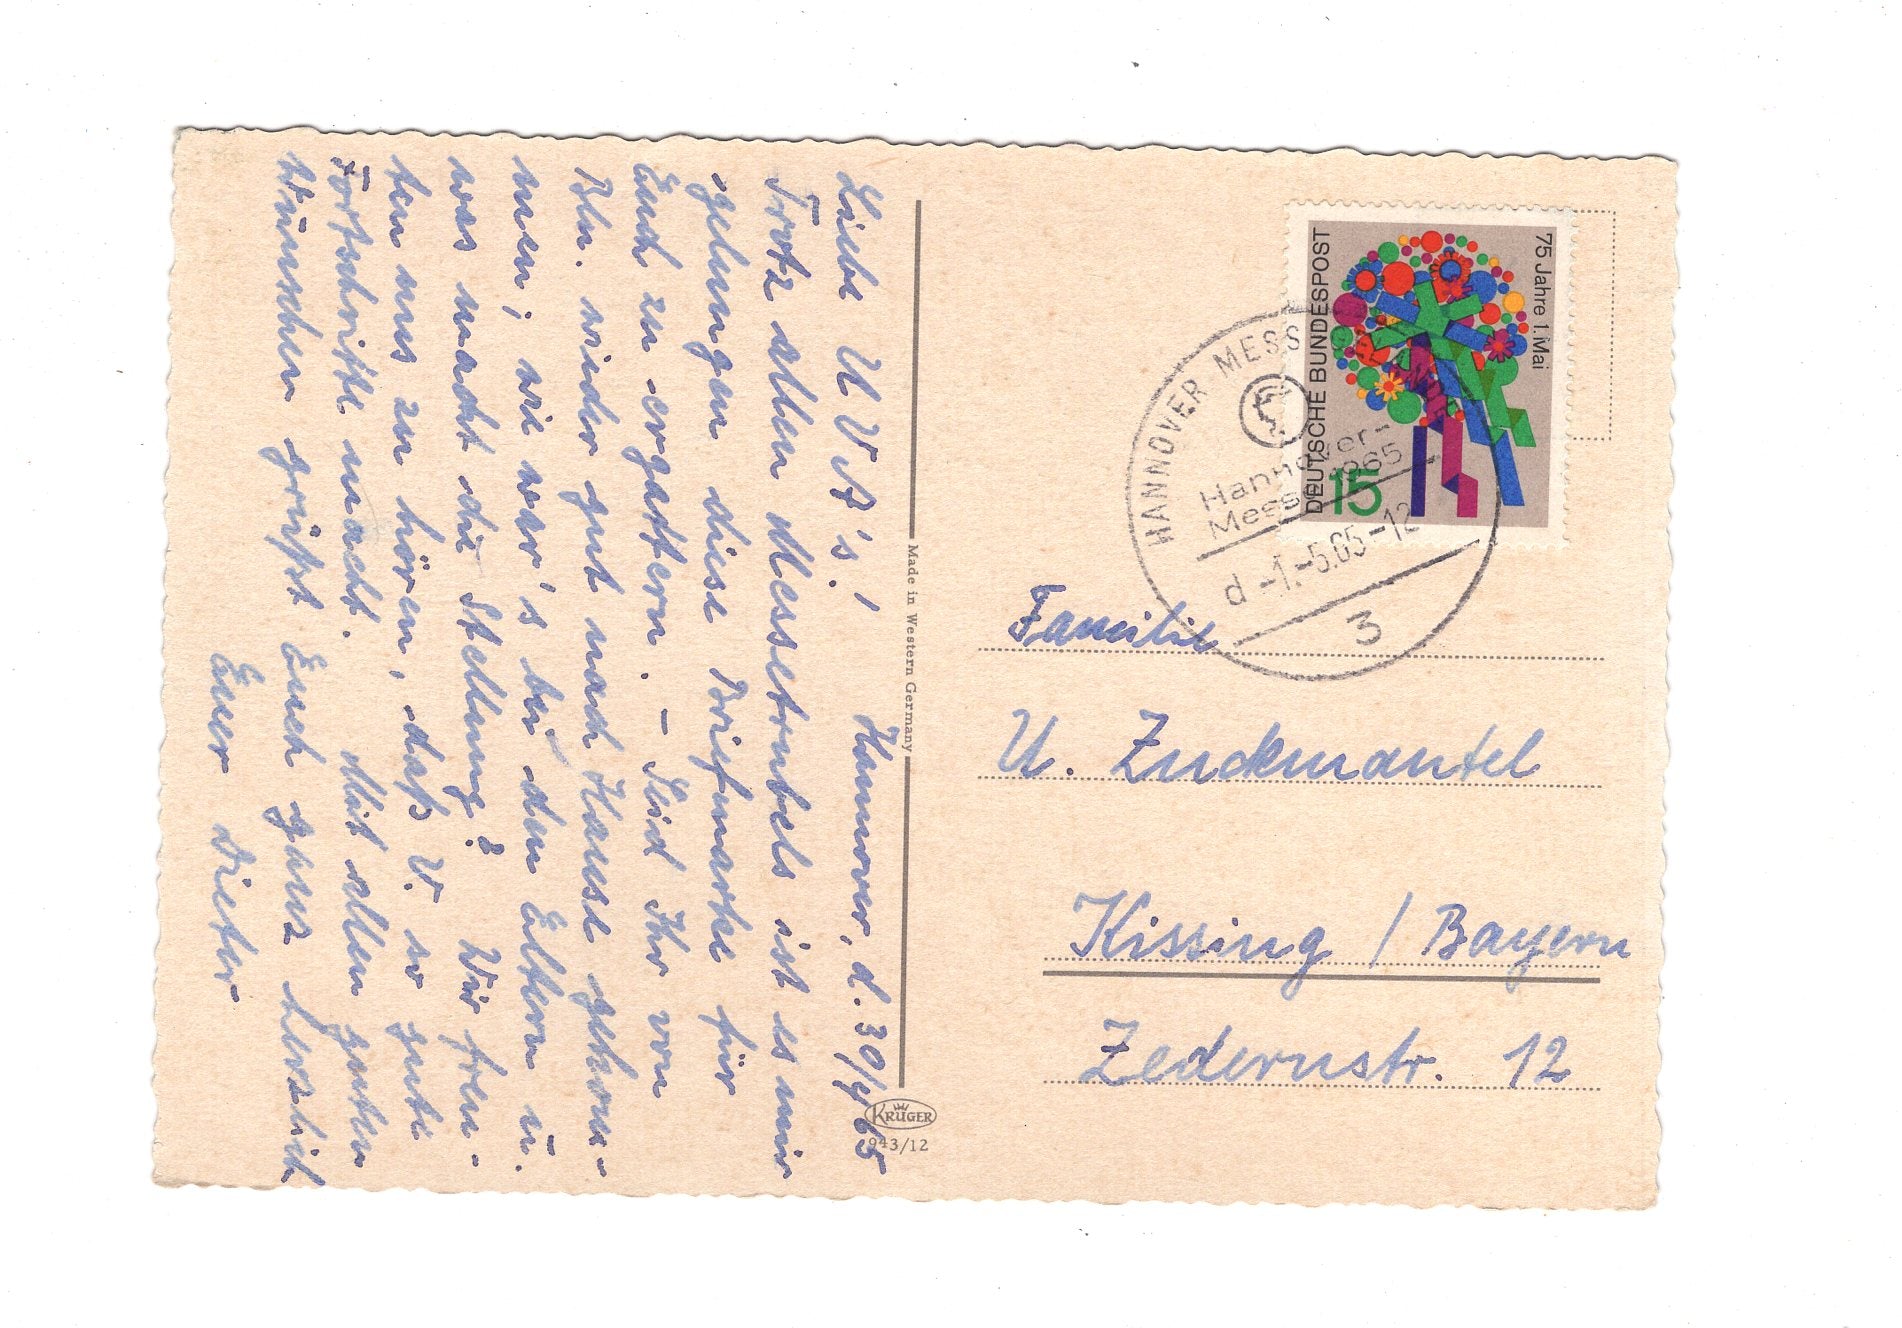 Hannover, d. 30/4 65
Liebe U V A's!
Trotz allen Messetrubels ist es mir
gelungen diese Briefmarke für
Euch zu ergattern. – Seid Ihr von
Bln. wieder gut nach Hause gekom-
men, wie war's bei den Eltern u.
was macht die Stellung? Wir freu-
ten uns zu hören, daß V. so gute
Fortschritte macht. Mit allen guten
Wünschen grüßt Euch ganz herzlich
Euer Dieter
Made in Western Germany
KRÜGER
943/12
75 Jahre 1. Mai
DEUTSCHE BUNDESPOST
15
HANNOVER MESS
Hannover-
Messe 1965
d -1.-5.65-12
3
Familie
U. Zuckmantel
Kissing / Bayern
Zedernstr. 12